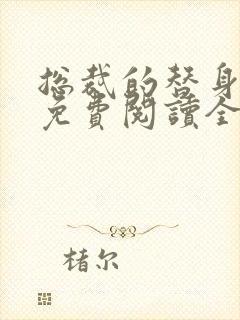 总裁的替身
免費閱讀全
楮尔